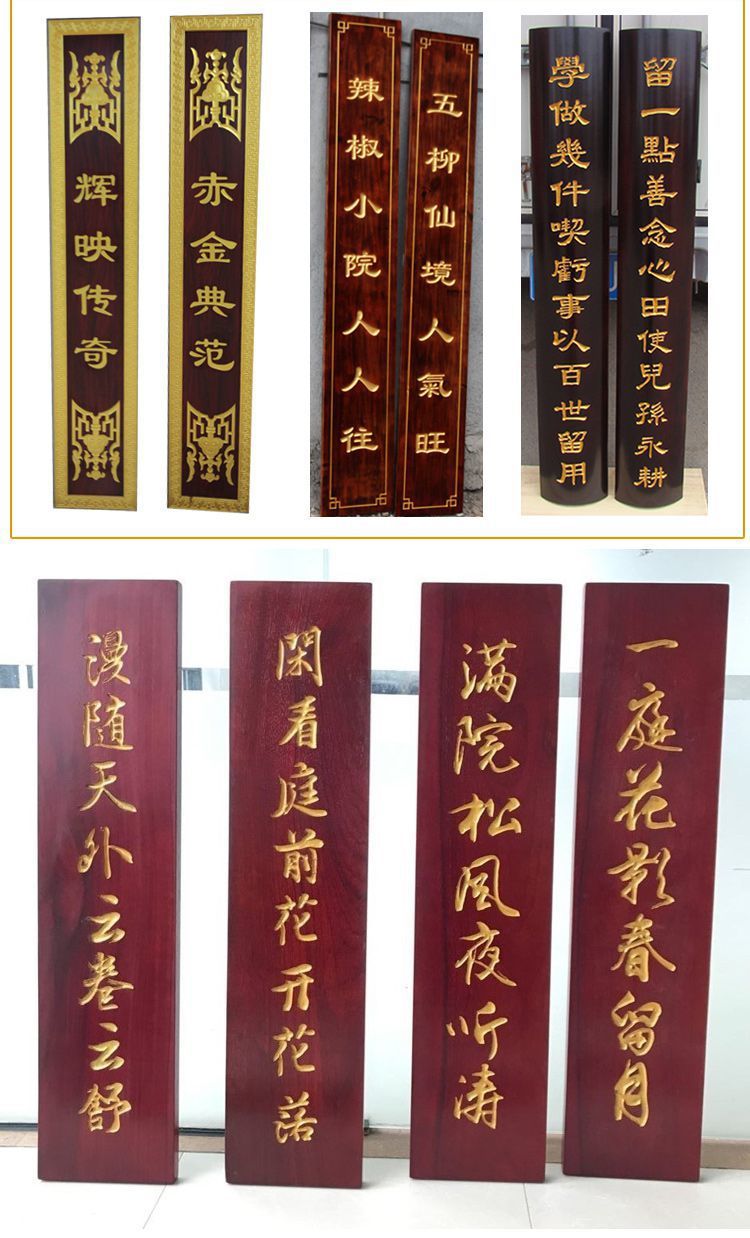 赤金典范
辉映传奇
五柳仙境人氣旺
辣椒小院人人往
留一點善念心田使兒孫永耕
學做幾件喫虧事以百世留用
閑看庭前花开花落
漫随天外云卷云舒
一庭花影春留月
满院松风夜听涛